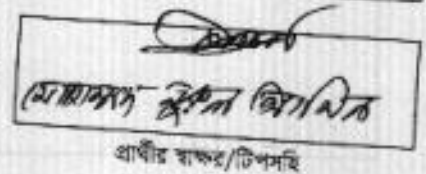 মোহাম্মদ নুরুল আমিন
প্রার্থীর স্বাক্ষর/টিপসহি